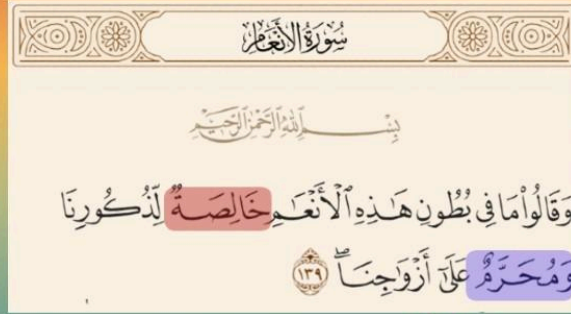 سُورَةُ الْأَنْعَامِ
بِسْمِ ٱللَّهِ ٱلرَّحْمَٰنِ ٱلرَّحِيمِ
وَقَالُوا۟ مَا فِى بُطُونِ هَـٰذِهِ ٱلْأَنْعَـٰمِ خَالِصَةٌ لِّذُكُورِنَا
وَمُحَرَّمٌ عَلَىٰٓ أَزْوَٰجِنَا ۖ ١٣٩